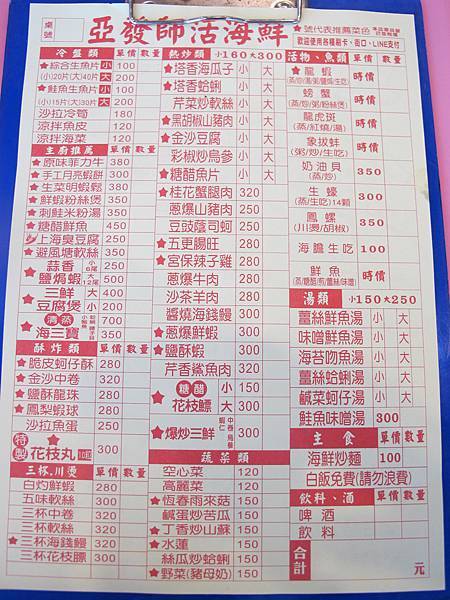 桌號
亞發師活海鮮
★號代表推薦菜色
歡迎使用各種刷卡、街口、LINE支付
冷盤類 單價 數量
★綜合生魚片 小 100
(小)20片(大)40片 大 200
★鮭魚生魚片 小 100
(小)15片(大)30片 大 200
沙拉冷筍 180
涼拌魚皮 120
涼拌海菜 120
主廚推薦 單價 數量
★原味菲力牛 380
★手工月亮蝦餅 300
★生菜明蝦鬆 380
★鮮蝦粉絲煲 350
★刺鮭米粉湯 350
★糖醋鮮魚 450
上海臭豆腐 250
★避風塘軟絲 350
★蒜香鹽焗蝦 小6尾 250
大12尾 500
★三鮮豆腐煲 大 400
小 200
★清蒸海三寶 700
350
酥炸類 單價 數量
★脆皮蚵仔酥 280
★金沙中卷 320
★鹽酥龍珠 280
★鳳梨蝦球 280
沙拉魚蛋 250
★特製花枝丸 10粒 300
三杯.川燙 單價 數量
白灼鮮蝦 280
五味軟絲 300
三杯中卷 320
三杯軟絲 320
★三杯海錢鰻 320
三杯花枝膘 300
熱炒類 小160大300
★塔香海瓜子 小 大
★塔香蛤蜊 小 大
芹菜炒軟絲 小 大
★黑胡椒山豬肉 小 大
★金沙豆腐 小 大
彩椒炒烏參 小 大
★糖醋魚片 小 大
★桂花蟹腿肉 320
蔥爆山豬肉 250
豆豉蔭司蚵 250
★五更腸旺 280
★宮保辣子雞 280
蔥爆牛肉 280
沙茶羊肉 280
醬燒海錢鰻 300
★蔥爆鮮蝦 300
★鹽酥蝦 300
芹香鯊魚肉 320
★糖醋花枝鰾 小 150
大 300
★爆炒三鮮 300
蔬菜類
空心菜 120
高麗菜 120
★恆春雨來菇 150
鹹蛋炒苦瓜 150
★丁香炒山蘇 150
★水蓮 150
絲瓜炒蛤蜊 150
★野菜(豬母奶) 150
活物、魚類 單價 數量
★龍蝦 時價
螃蟹 時價
(蒸/炒/粥/粉絲煲)
龍虎斑 時價
(蒸/紅燒/湯)
象拔蚌 時價
(粥/炒/生吃)
奶油貝 350
(蒸/炒)
生蠔 350
(蒸/炒/生吃)14顆
鳳螺 350
(川燙/胡椒)
海膽生吃 100
鮮魚 時價
(蒸/糖醋/煎/蓋絲/味噌)
湯類 小150大250
薑絲鮮魚湯 小 大
味噌鮮魚湯 小 大
海苔吻魚湯 小 大
薑絲蛤蜊湯 小 大
鹹菜蚵仔湯 小 大
鮭魚味噌湯 300
主食 單價 數量
海鮮炒麵 100
白飯免費(請勿浪費)
飲料、酒 單價 數量
啤酒
飲料
合計 元